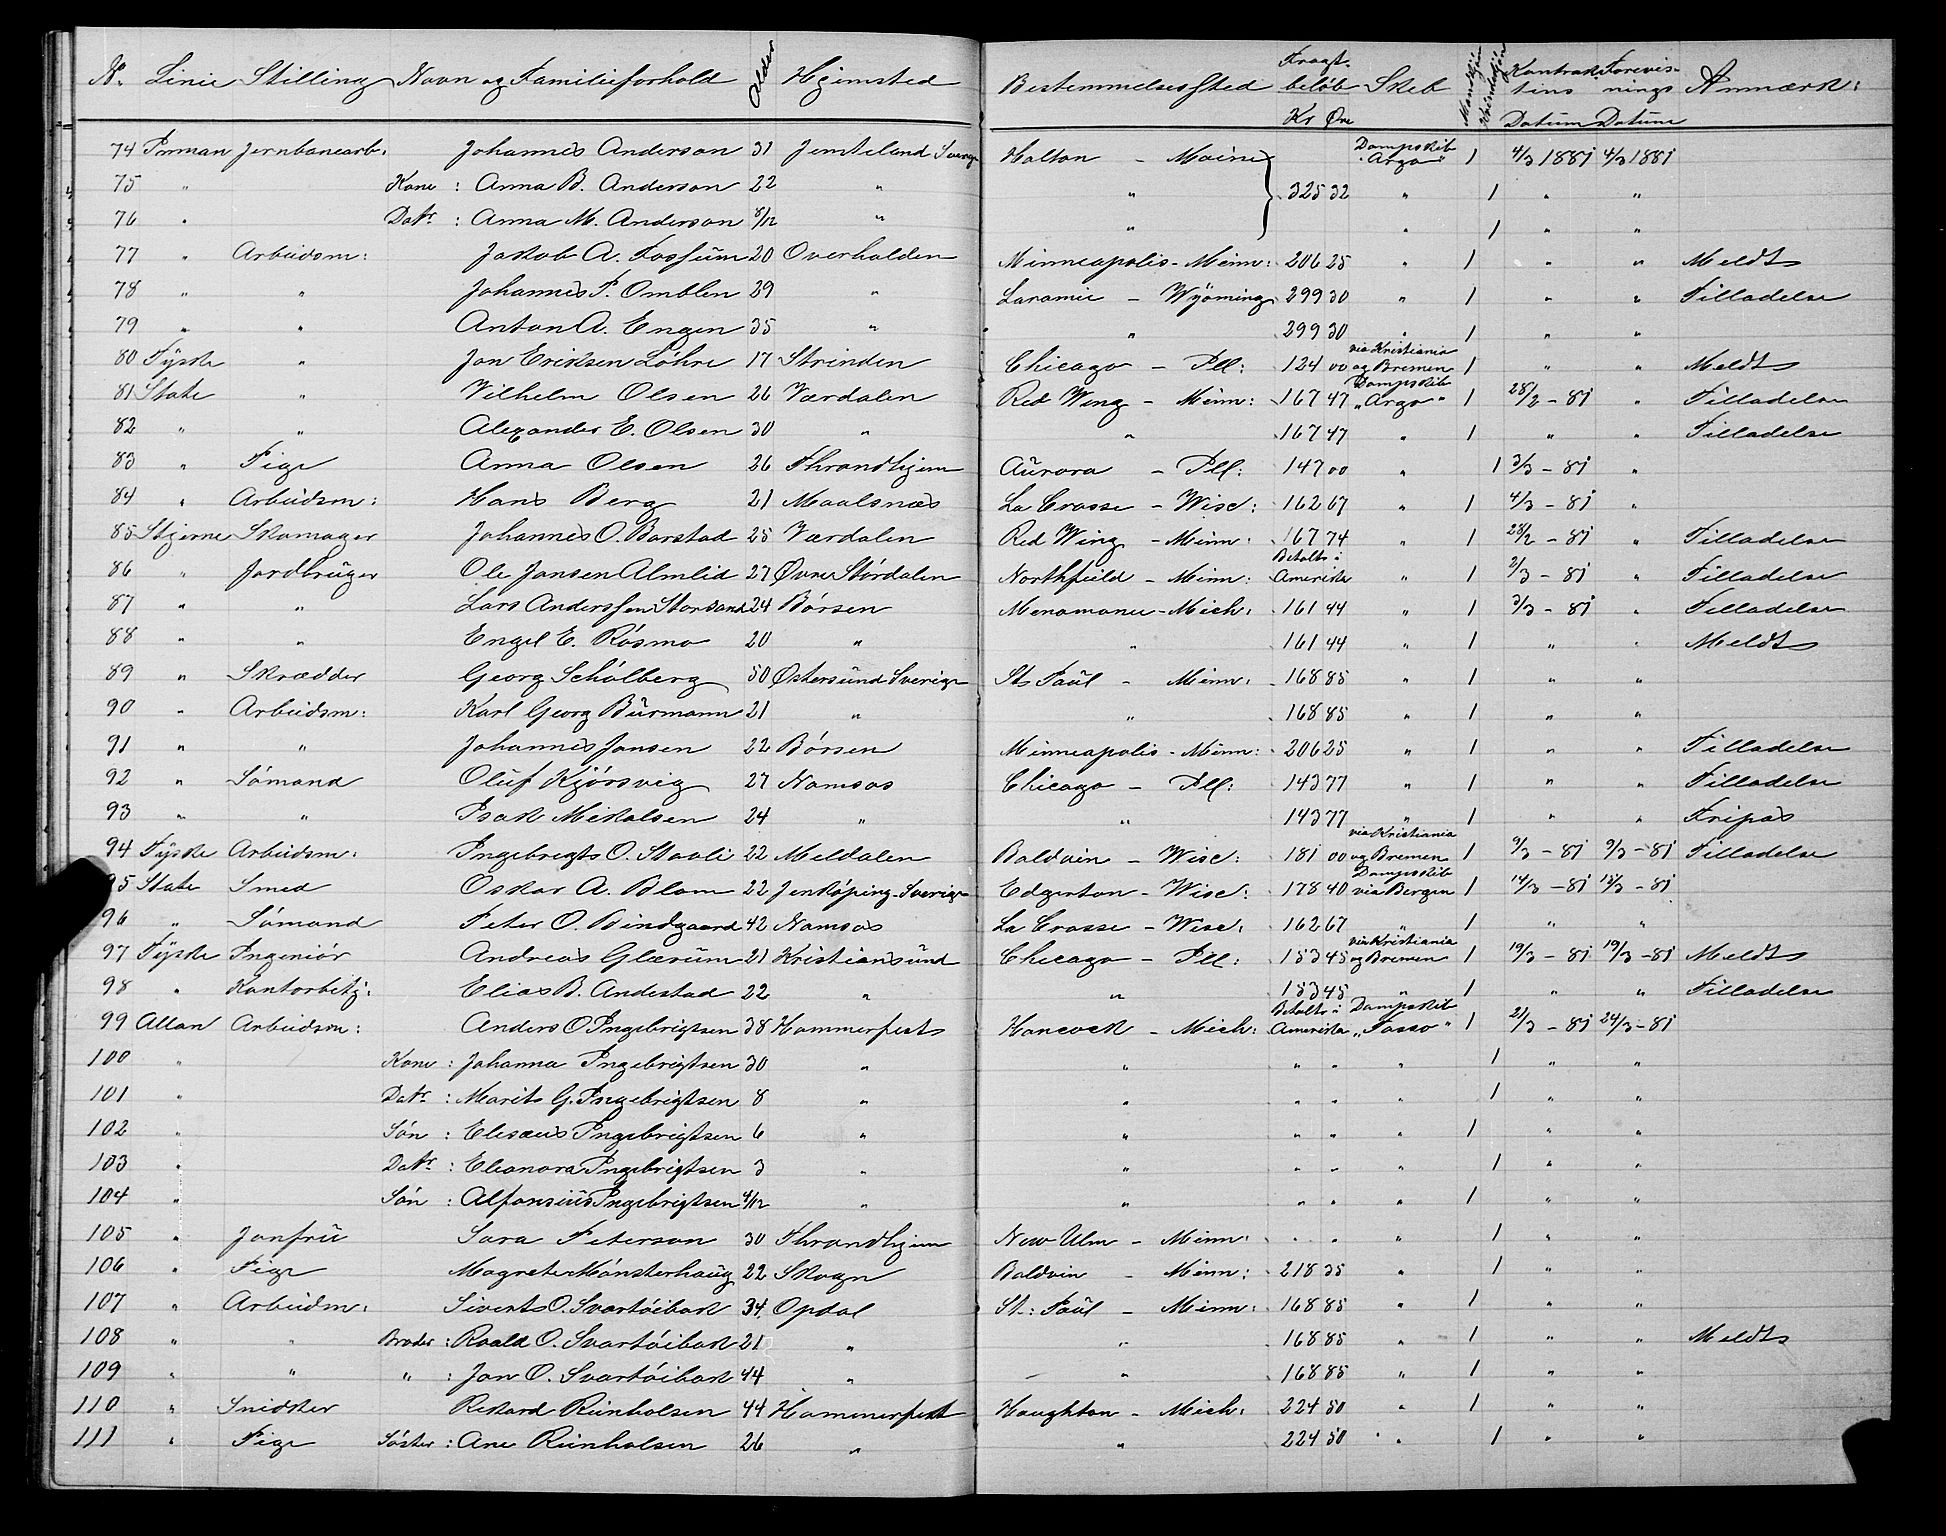 No. Linie Stilling Navn og Familieforhold Alder Hjemsted Bestemmelsessted Fragtbeløb Kr Øre Skib Mandkjøn Kvindekjøn Kontraktins Datum Forevisnings Datum Anmærk:
74 Inman Jernbanearb. Johannes Anderson 31 Jemteland Sverige Halton - Maine Dampskib "Argo" 1 4/3 1881 4/3 1881
75 " Kone : Anna B. Anderson 22 " " 325 32 " 1 " "
76 " Datr : Anna M. Anderson 8/12 " " " 1 " "
77 " Arbeidsm: Jakob A. Fossum 20 Overhalden Minneapolis - Minn: 206 25 " 1 " " Meldt
78 " " Johannes P. Omblen 29 " Laramie - Wyoming 299 30 " 1 " " Tilladelse
79 " " Anton A. Engen 35 " " 299 30 " 1 " "
80 Tyske " Jon Eriksen Løhre 17 Strinden Chicago - Ill: 124 00 via Kristiania og Bremen 1 " " Meldt
81 State " Vilhelm Olsen 26 Værdalen Red Wing - Minn: 167 47 Dampskib "Argo" 1 28/2 - 81 " Tilladelse
82 " " Alexander E. Olsen 30 " " 167 47 " 1 " " Tilladelse
83 " Pige Anna Olsen 26 Throndhjem Aurora - Ill: 147 00 " 1 3/3 - 81 "
84 " Arbeidsm: Hans Berg 21 Maalsnæs La Crosse - Wisc: 162 67 " 1 4/3 - 81 "
85 Stjerne Skomager Johannes O. Barstad 25 Værdalen Red Wing - Minn: 167 74 " 1 28/2 - 81 " Tilladelse
86 " Jordbruger Ole Jansen Almlid 27 Øvre Størdalen Northfield - Minn: Betalt i Amerika " 1 2/3 - 81 " Tilladelse
87 " " Lars Anderssen Storsand 24 Børsen Menomonee - Mich: 161 44 " 1 3/3 - 81 " Tilladelse
88 " " Engel E. Røsmo 20 " " 161 44 " 1 " " Meldt
89 " Skrædder Georg Schölberg 50 Østersund Sverige St Paul - Minn: 168 85 " 1 " "
90 " Arbeidsm: Karl Georg Burmann 21 " " 168 85 " 1 " "
91 " " Johannes Jansen 22 Børsen Minneapolis - Minn: 206 25 " 1 " " Tilladelse
92 " Sømand Oluf Kjørsvig 27 Namsos Chicago - Ill: 143 77 " 1 " " Tilladelse
93 " " Isak Mikalsen 24 " " 143 77 " 1 " " Fripas
94 Tyske Arbeidsm: Ingebregt O. Staali 22 Meldalen Baldvin - Wisc: 181 00 via Kristiania og Bremen 1 9/3 - 81 9/3 - 81 Tilladelse
95 State Smed Oskar A. Blom 22 Jenköping Sverige Edgerton - Wisc: 178 40 Dampskib via Bergen 1 14/3 - 81 14/3 - 81
96 " Sømand Peter O. Bindgaard 42 Namsos La Crosse - Wisc: 162 67 " 1 " "
97 Tyske Ingeniør Andreas Glærum 21 Kristiansund Chicago - Ill: 153 45 via Kristiania og Bremen 1 19/3 - 81 19/3 - 81 Meldt
98 " Kontorbetj: Elias B. Andestad 22 " " 153 45 " 1 " " Tilladelse
99 Allan Arbeidsm: Anders O Ingebrigtsen 38 Hammerfest Hancock - Mich: Betalt i Amerika Dampskib "Tasso" 1 21/3 - 81 24/3 - 81
100 " Kone : Johanna Ingebrigtsen 30 " " " " " 1 " "
101 " Datr : Marit G. Ingebrigtsen 8 " " " " " 1 " "
102 " Søn : Elisæus Ingebrigtsen 6 " " " " " 1 " "
103 " Datr : Eleonora Ingebrigtsen 3 " " " " " 1 " "
104 " Søn : Alfonsius Ingebrigtsen 4/12 " " " " " 1 " "
105 " Jonfru Sara Peterson 30 Throndhjem New Ulm - Minn: " " " 1 " "
106 " Pige Magrete Mønsterhaug 22 Skogn Baldvin - Minn: 218 35 " 1 " "
107 " Arbeidm: Sivert O. Svartøibak 34 Opdal St: Paul - Minn: 168 85 " 1 " "
108 " " Broder : Roald O. Svartøibak 21 " " 168 85 " 1 " " Meldt
109 " " " : Jon O. Svartøibak 44 " " 168 85 " 1 " "
110 " Snidker Rikard Reinholsen 44 Hammerfest Houghton - Mich: 224 50 " 1 " "
111 " Pige Søster : Ane Reinholsen 26 " " 224 50 " 1 " "